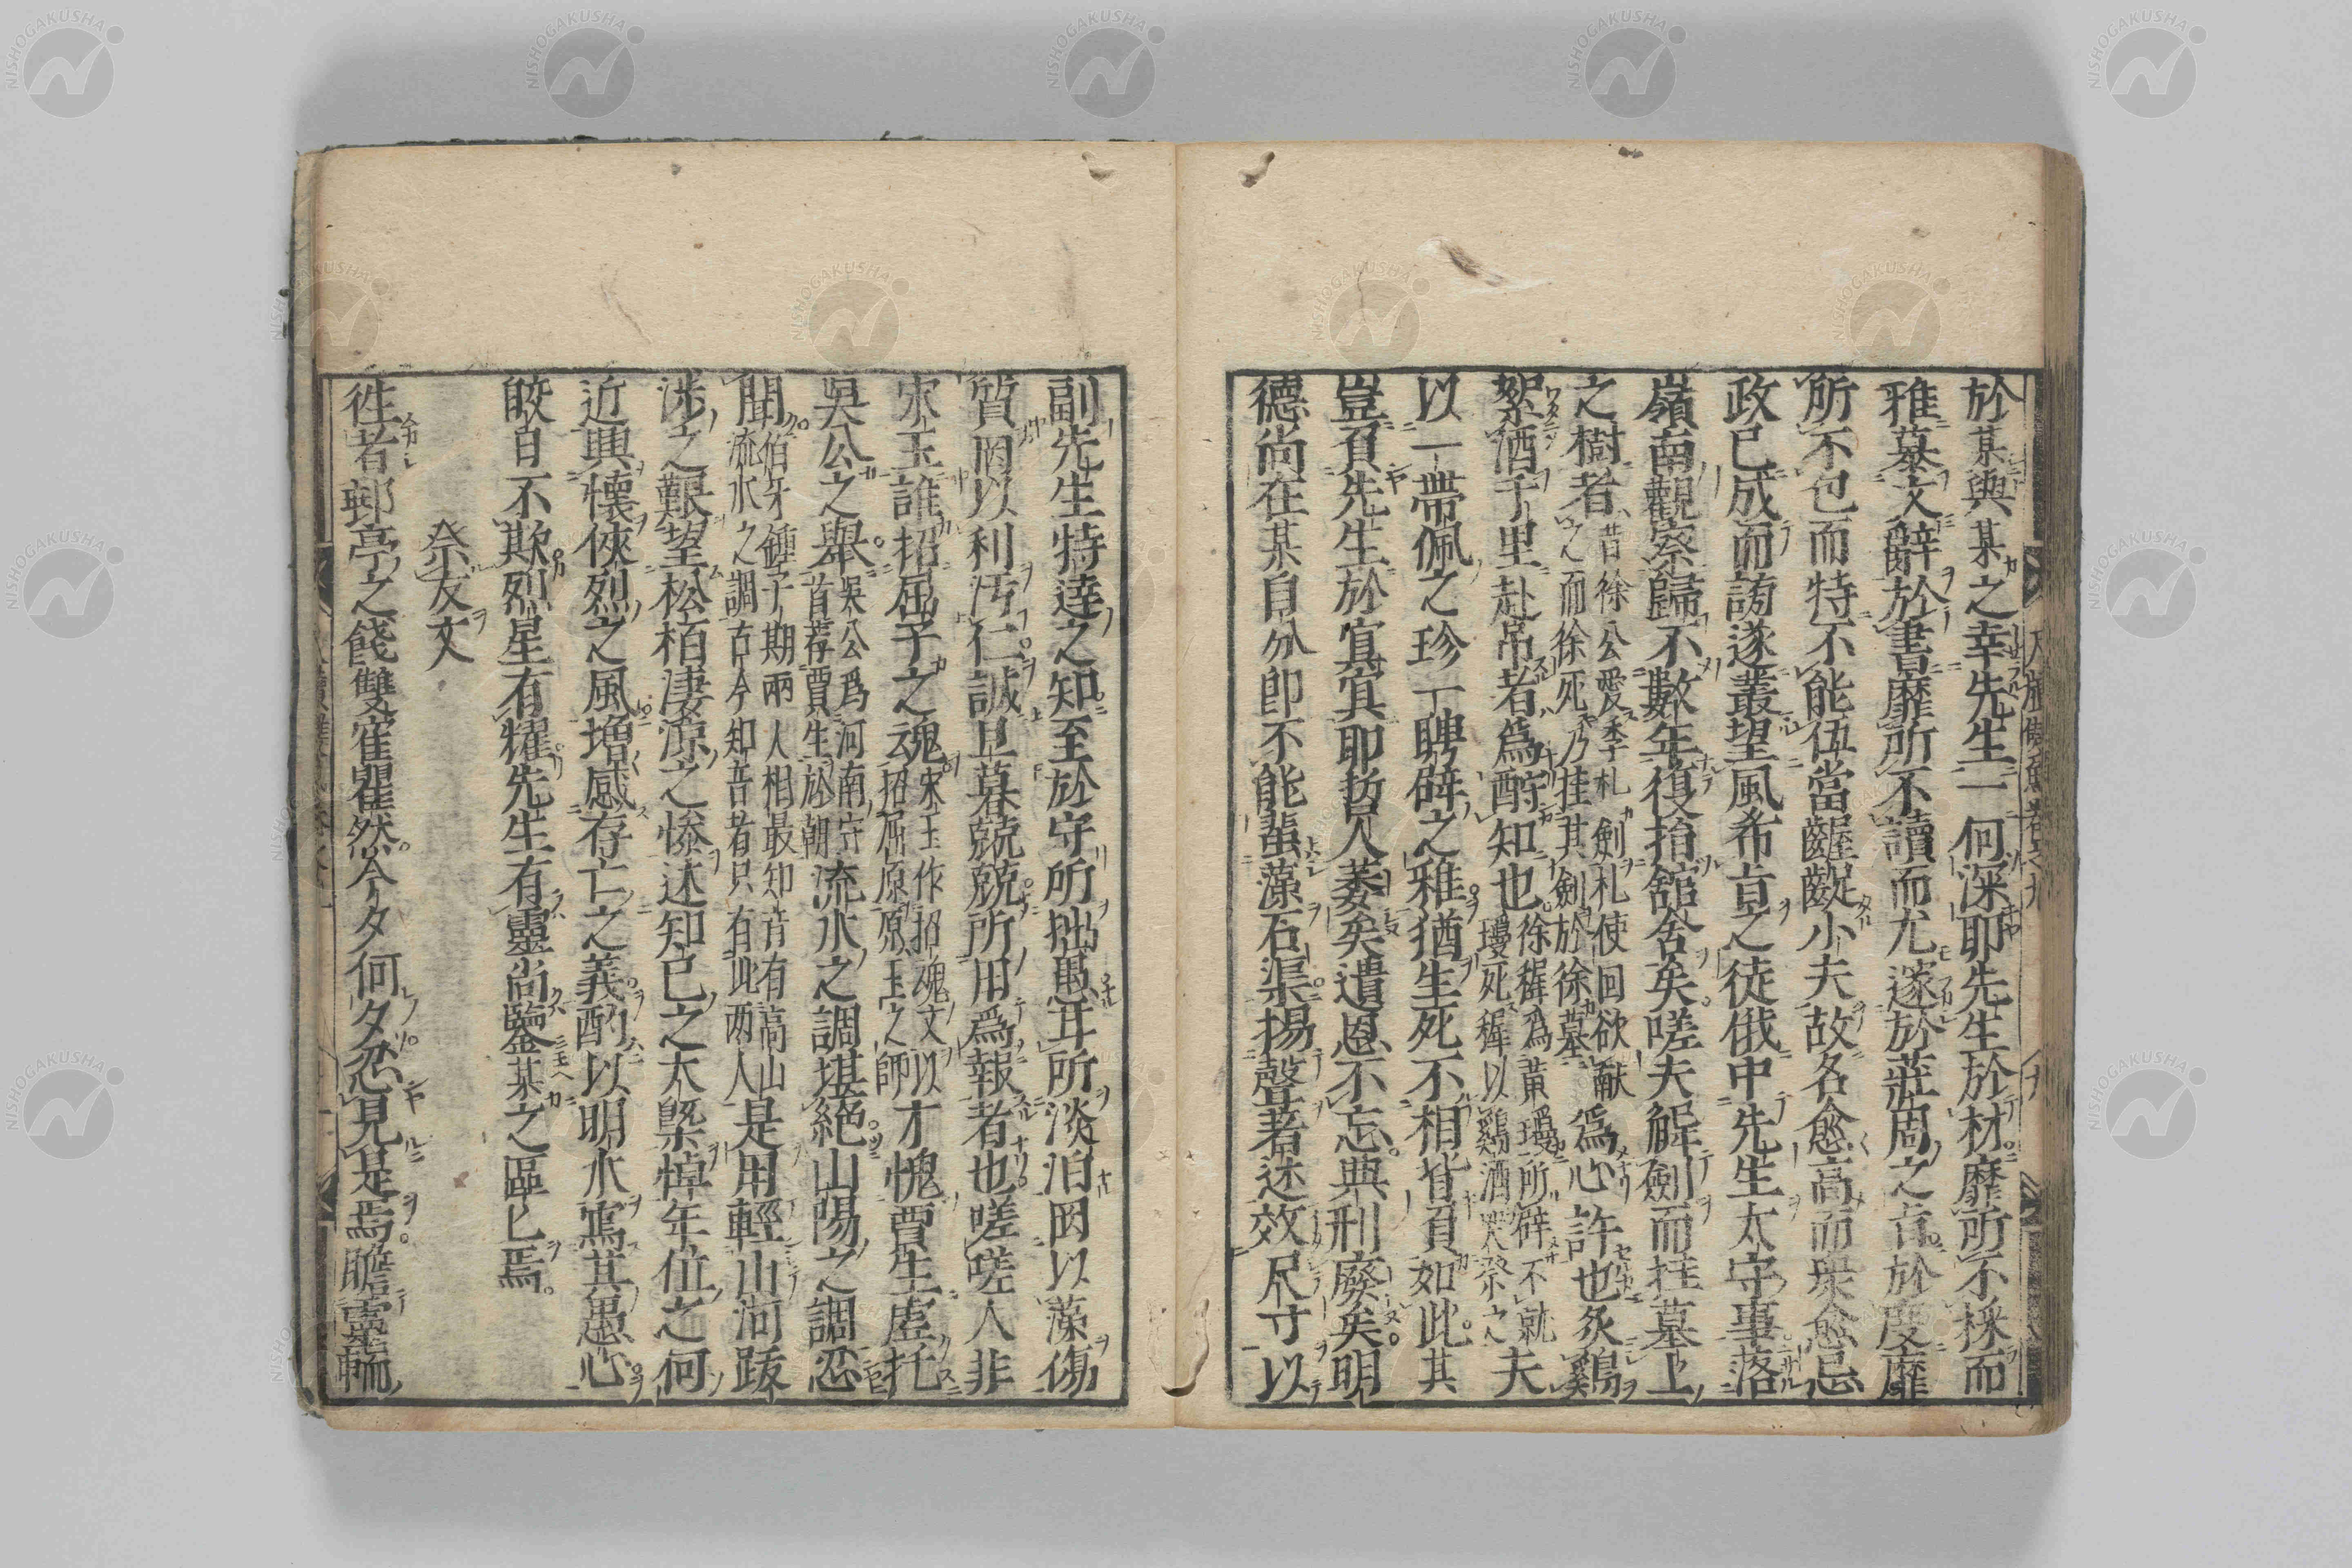 於某與某之幸先生一何深耶先生於材靡所不採而
雅慕文辭於書靡所不讀而尤邃於莊周之言於度靡
所不包而特不能伍當齷齪小夫故名愈高而衆愈忌
政已成而謗遂叢望風希旨之徒俄中先生太守事落
嶺南觀察歸不數年復捐舘舍矣嗟夫解劍而挂墓上
之樹者昔徐公愛季札劍札使回欲献之而徐死乃挂其劍於徐墓為心許也炙鷄
絮酒千里赴吊者爲酧知也徐穉為黄瓊所辟不就瓊死穉以鷄酒哭祭之夫
以一帶佩之珍一聘辟之雅猶生死不相背負如此其
豈負先生於冥冥耶哲人萎矣遺恩不忘典刑廢矣明
德尚在某自分卽不能蜚藻石渠揚聲著述效尺寸以
副先生特達之知至於守所拙愚耳所淡泊罔以藻傷
質罔以利汚仁誠旦暮兢兢所用爲報者也嗟嗟人非
宋玉誰招屈子之魂宋玉作招魂文以招屈原原玉之師才愧賈生虚托
吳公之舉吳公爲河南守首荐賈生於朝流水之調堪絕山陽之調忍
聞伯牙鍾子期兩人相最知音有高山流水之調古今知音者只有此两人是用輕山河跋
涉之艱望松栢凄凉之慘述知已之大槩悼年位之何
近興懷俠烈之風增感存亡之義酌以明水寫其愚心
皎日不欺烈星有耀先生有靈尚鑒某之區匕焉
祭友文
徃者郵亭之餞雙寉瞿然今夕何夕忍見是焉瞻靈輀